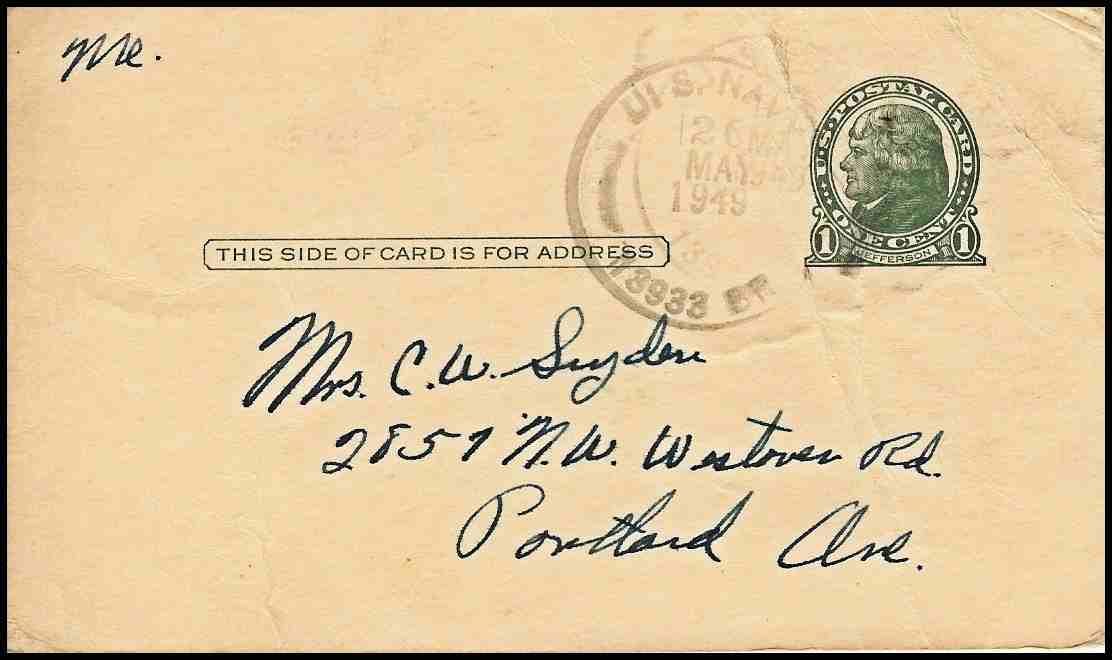 Me.
U.S. NAVY
12 M
MAY
1949
13933 BR
U.S. POSTAL CARD
ONE CENT
1 JEFFERSON 1
THIS SIDE OF CARD IS FOR ADDRESS
Mrs. C. W. Snyder
2857 N.W. Westover Rd.
Portland Ore.